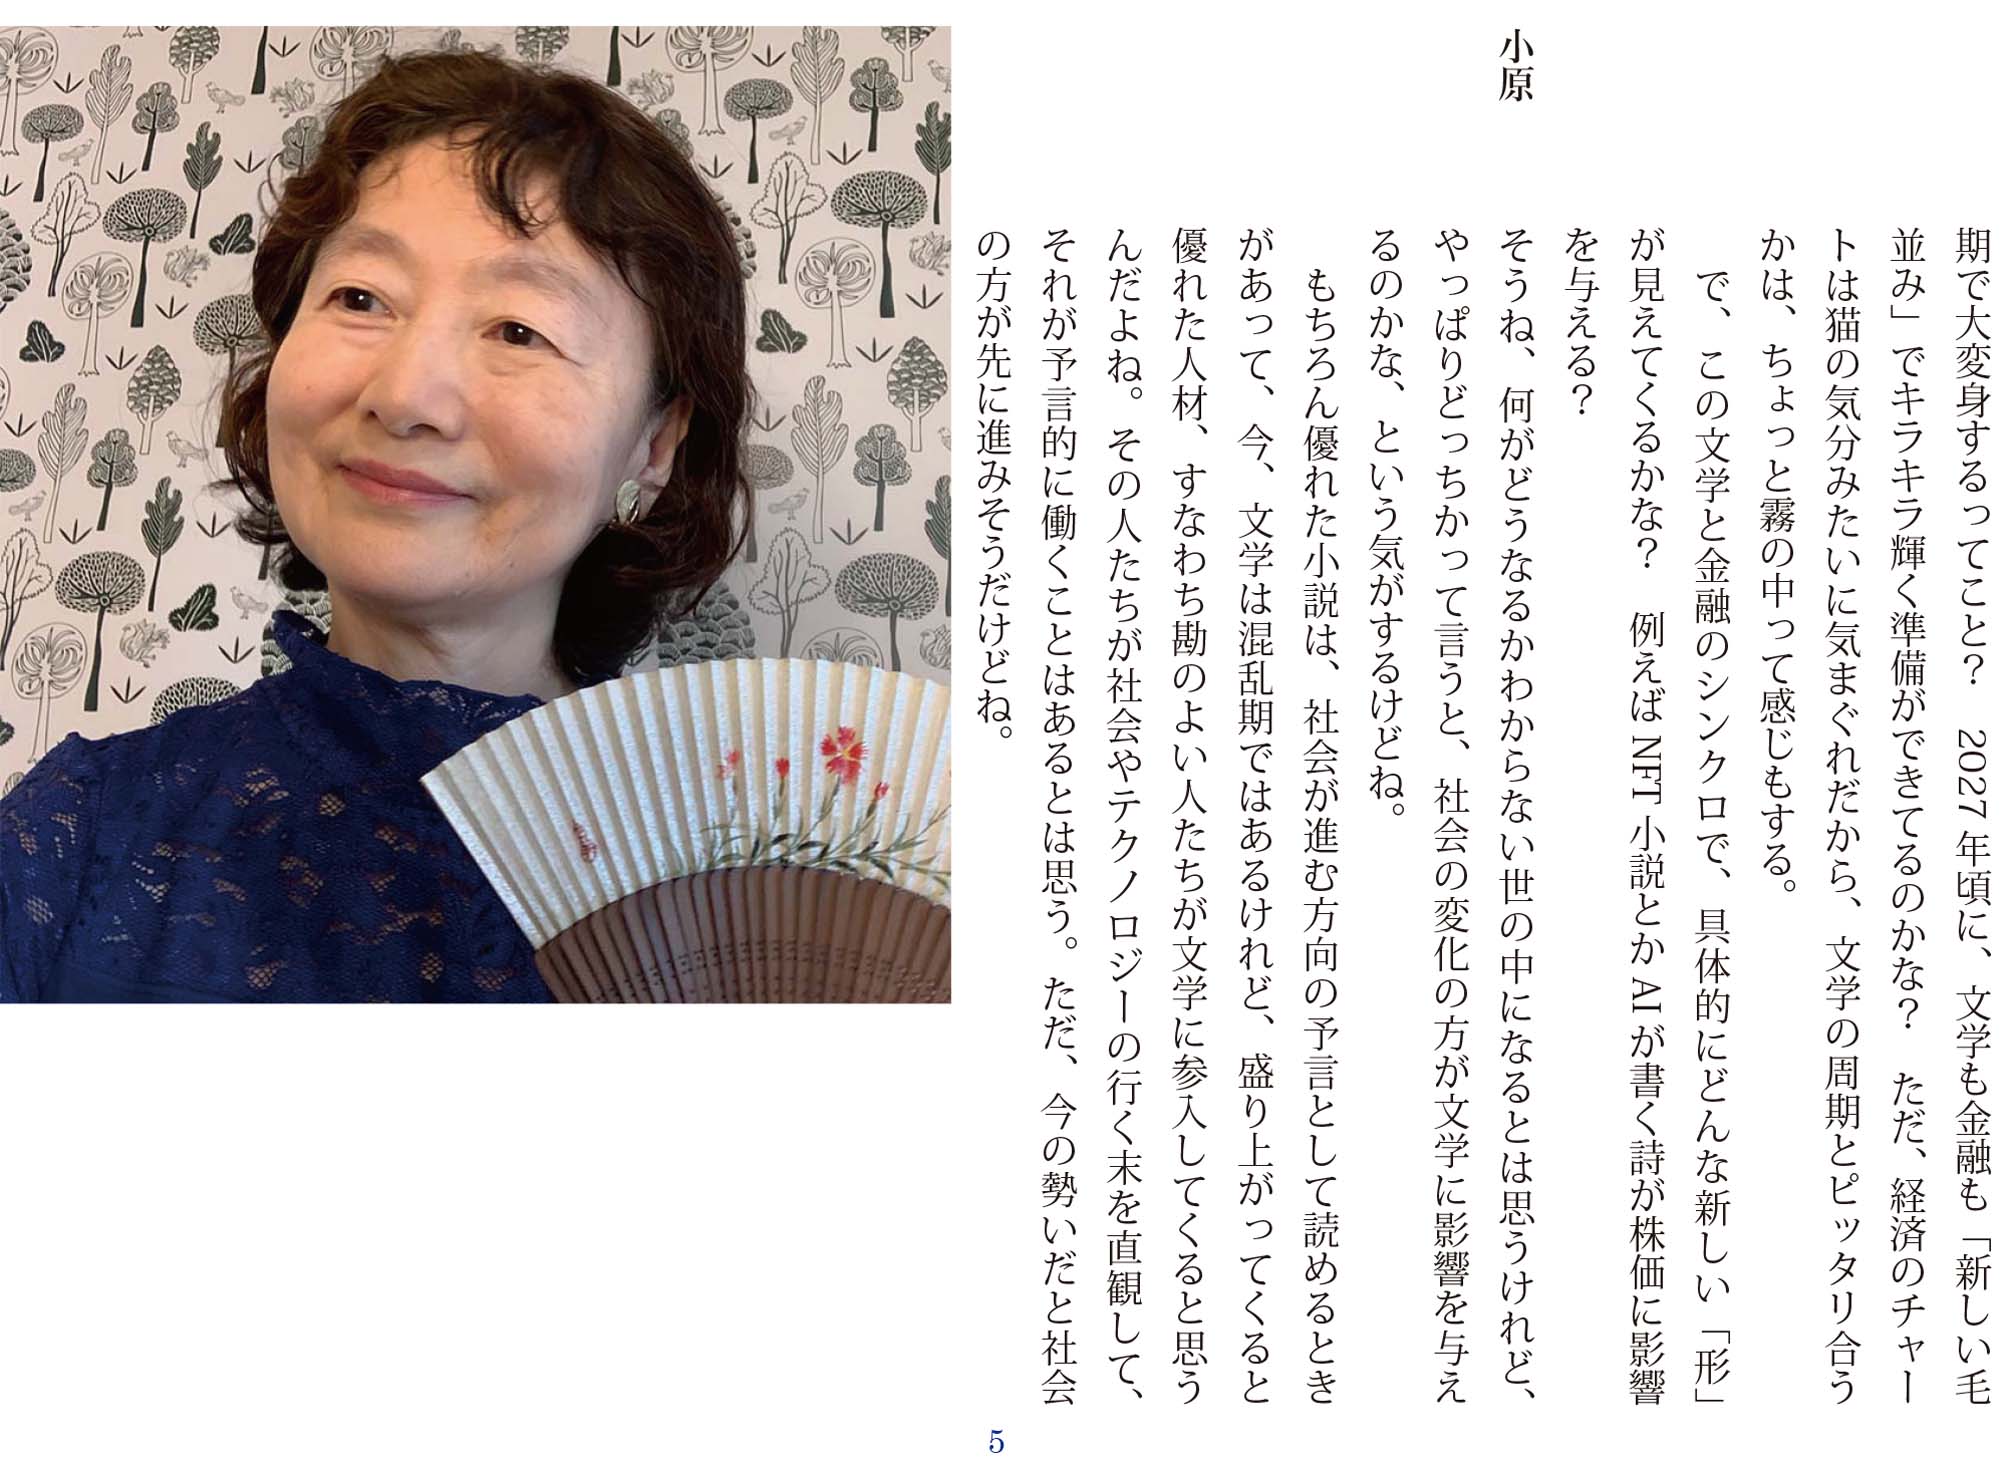 期で大変身するってこと？　2027 年頃に、文学も金融も「新しい毛
並み」でキラキラ輝く準備ができてるのかな？　ただ、経済のチャー
トは猫の気分みたいに気まぐれだから、文学の周期とピッタリ合う
かは、ちょっと霧の中って感じもする。
　で、この文学と金融のシンクロで、具体的にどんな新しい「形」
が見えてくるかな？　例えば NFT 小説とか AI が書く詩が株価に影響
を与える？
小原
そうね、何がどうなるかわからない世の中になるとは思うけれど、
やっぱりどっちかって言うと、社会の変化の方が文学に影響を与え
るのかな、という気がするけどね。
　もちろん優れた小説は、社会が進む方向の予言として読めるとき
があって、今、文学は混乱期ではあるけれど、盛り上がってくると
優れた人材、すなわち勘のよい人たちが文学に参入してくると思う
んだよね。その人たちが社会やテクノロジーの行く末を直観して、
それが予言的に働くことはあるとは思う。ただ、今の勢いだと社会
の方が先に進みそうだけどね。
5